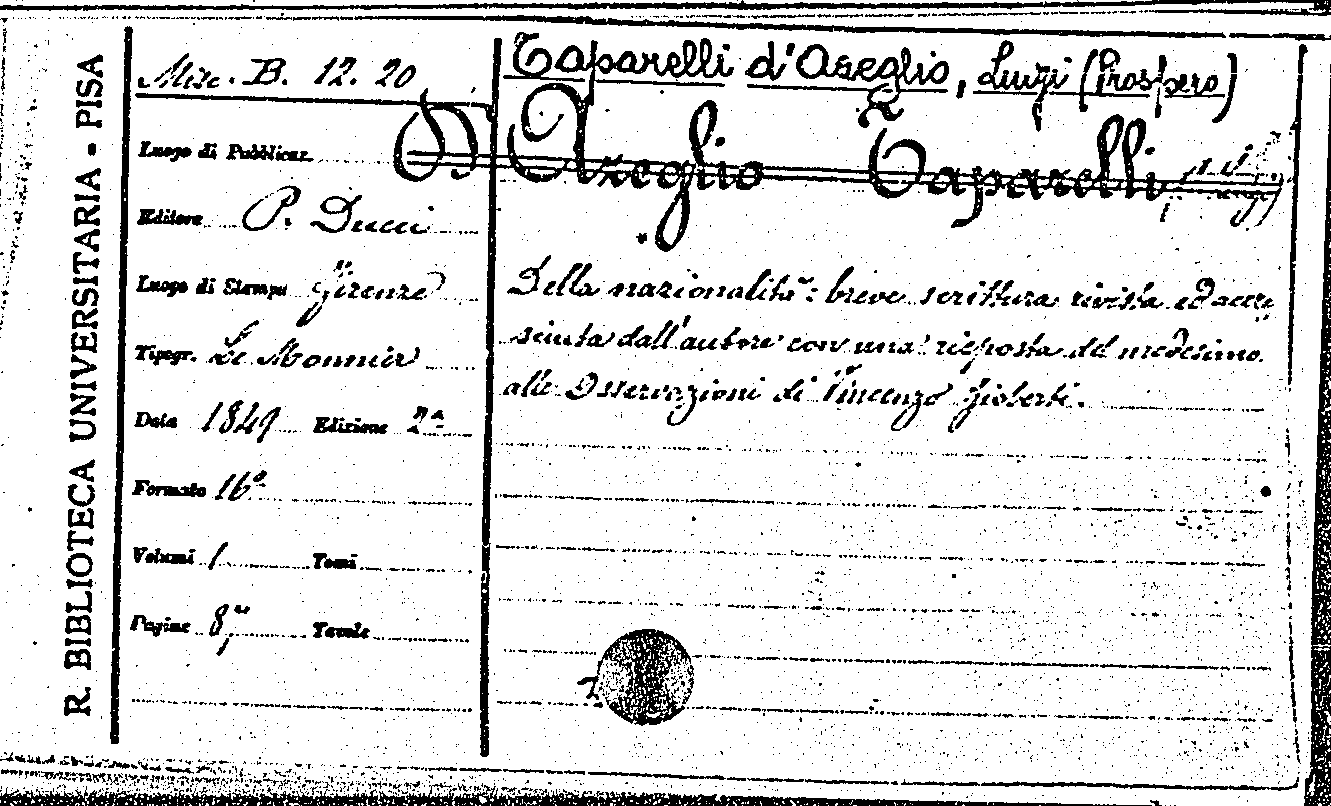 R. BIBLIOTECA UNIVERSITARIA - PISA
Misc. B. 12. 20
Luogo di Pubblicaz.
Editore P. Ducci
Luogo di Stampa Firenze
Tipogr. Le Monnier
Data 1849 Edizione 2ª
Formato 16º
Volumi 1 Tomi
Pagine 8,
Tavole
Taparelli d'Azeglio, Luigi (Prospero)
D'Azeglio Taparelli
Della nazionalità: breve scrittura rivista ed accre
sciuta dall'autore con una risposta del medesimo
alle Osservazioni di Vincenzo Gioberti.